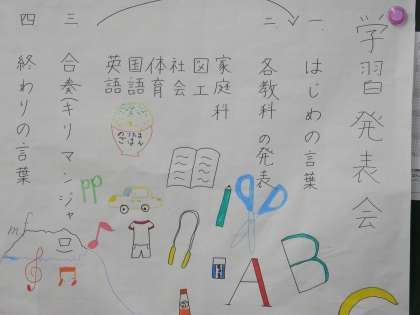 学習発表会
一、はじめの言葉
二、各教科の発表
家庭科
図工
社会
体育
国語
英語
三 合奏(キリマンジャ
四 終わりの言葉
pp
mf
A
B